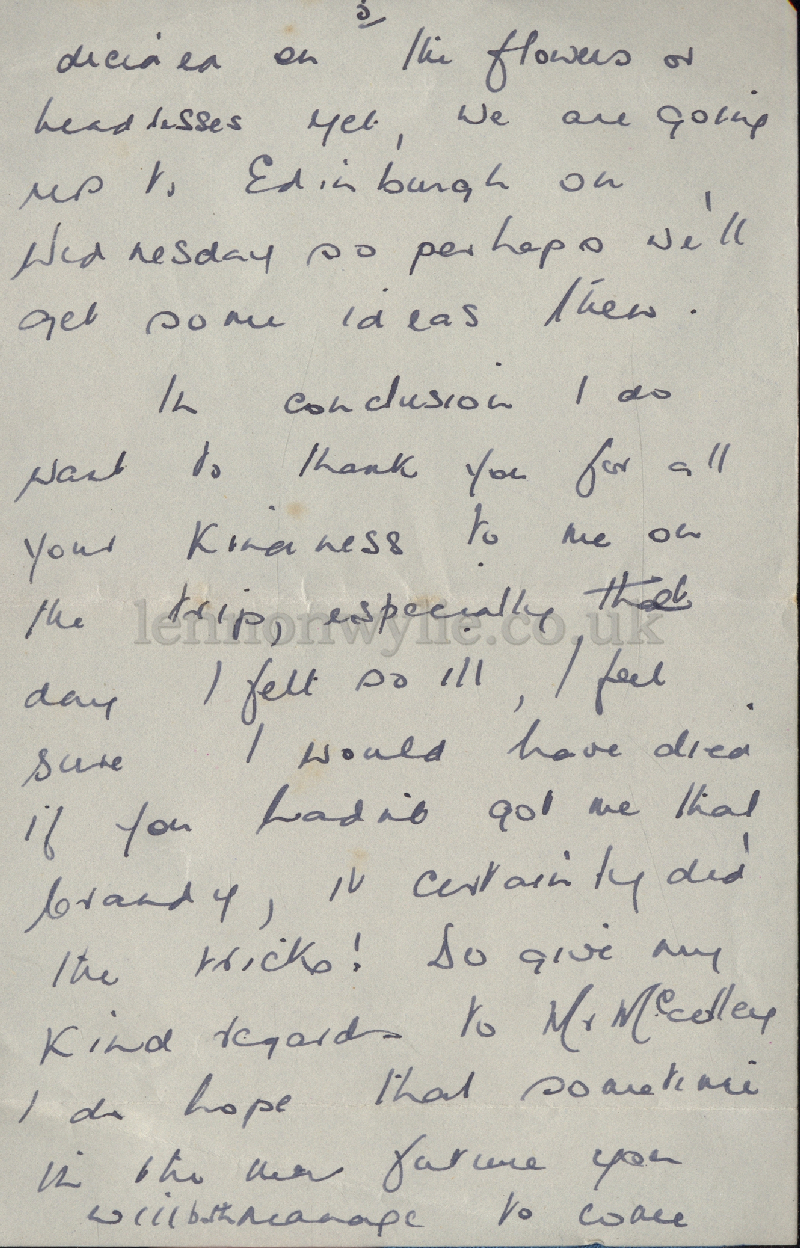 5
decided on the flowers or
headdresses yet, we are going
up to Edinburgh on
Wednesday so perhaps we'll
get some ideas then.
In conclusion I do
want to thank you for all
your kindness to me on
the trip, especially that
day I felt so ill, I feel
sure I would have died
if you hadn't got me that
brandy, it certainly did
the tricks! Do give my
kind regards to Mr
I do hope that sometime
in the near future you
will both manage to come
lennonwylie.co.uk